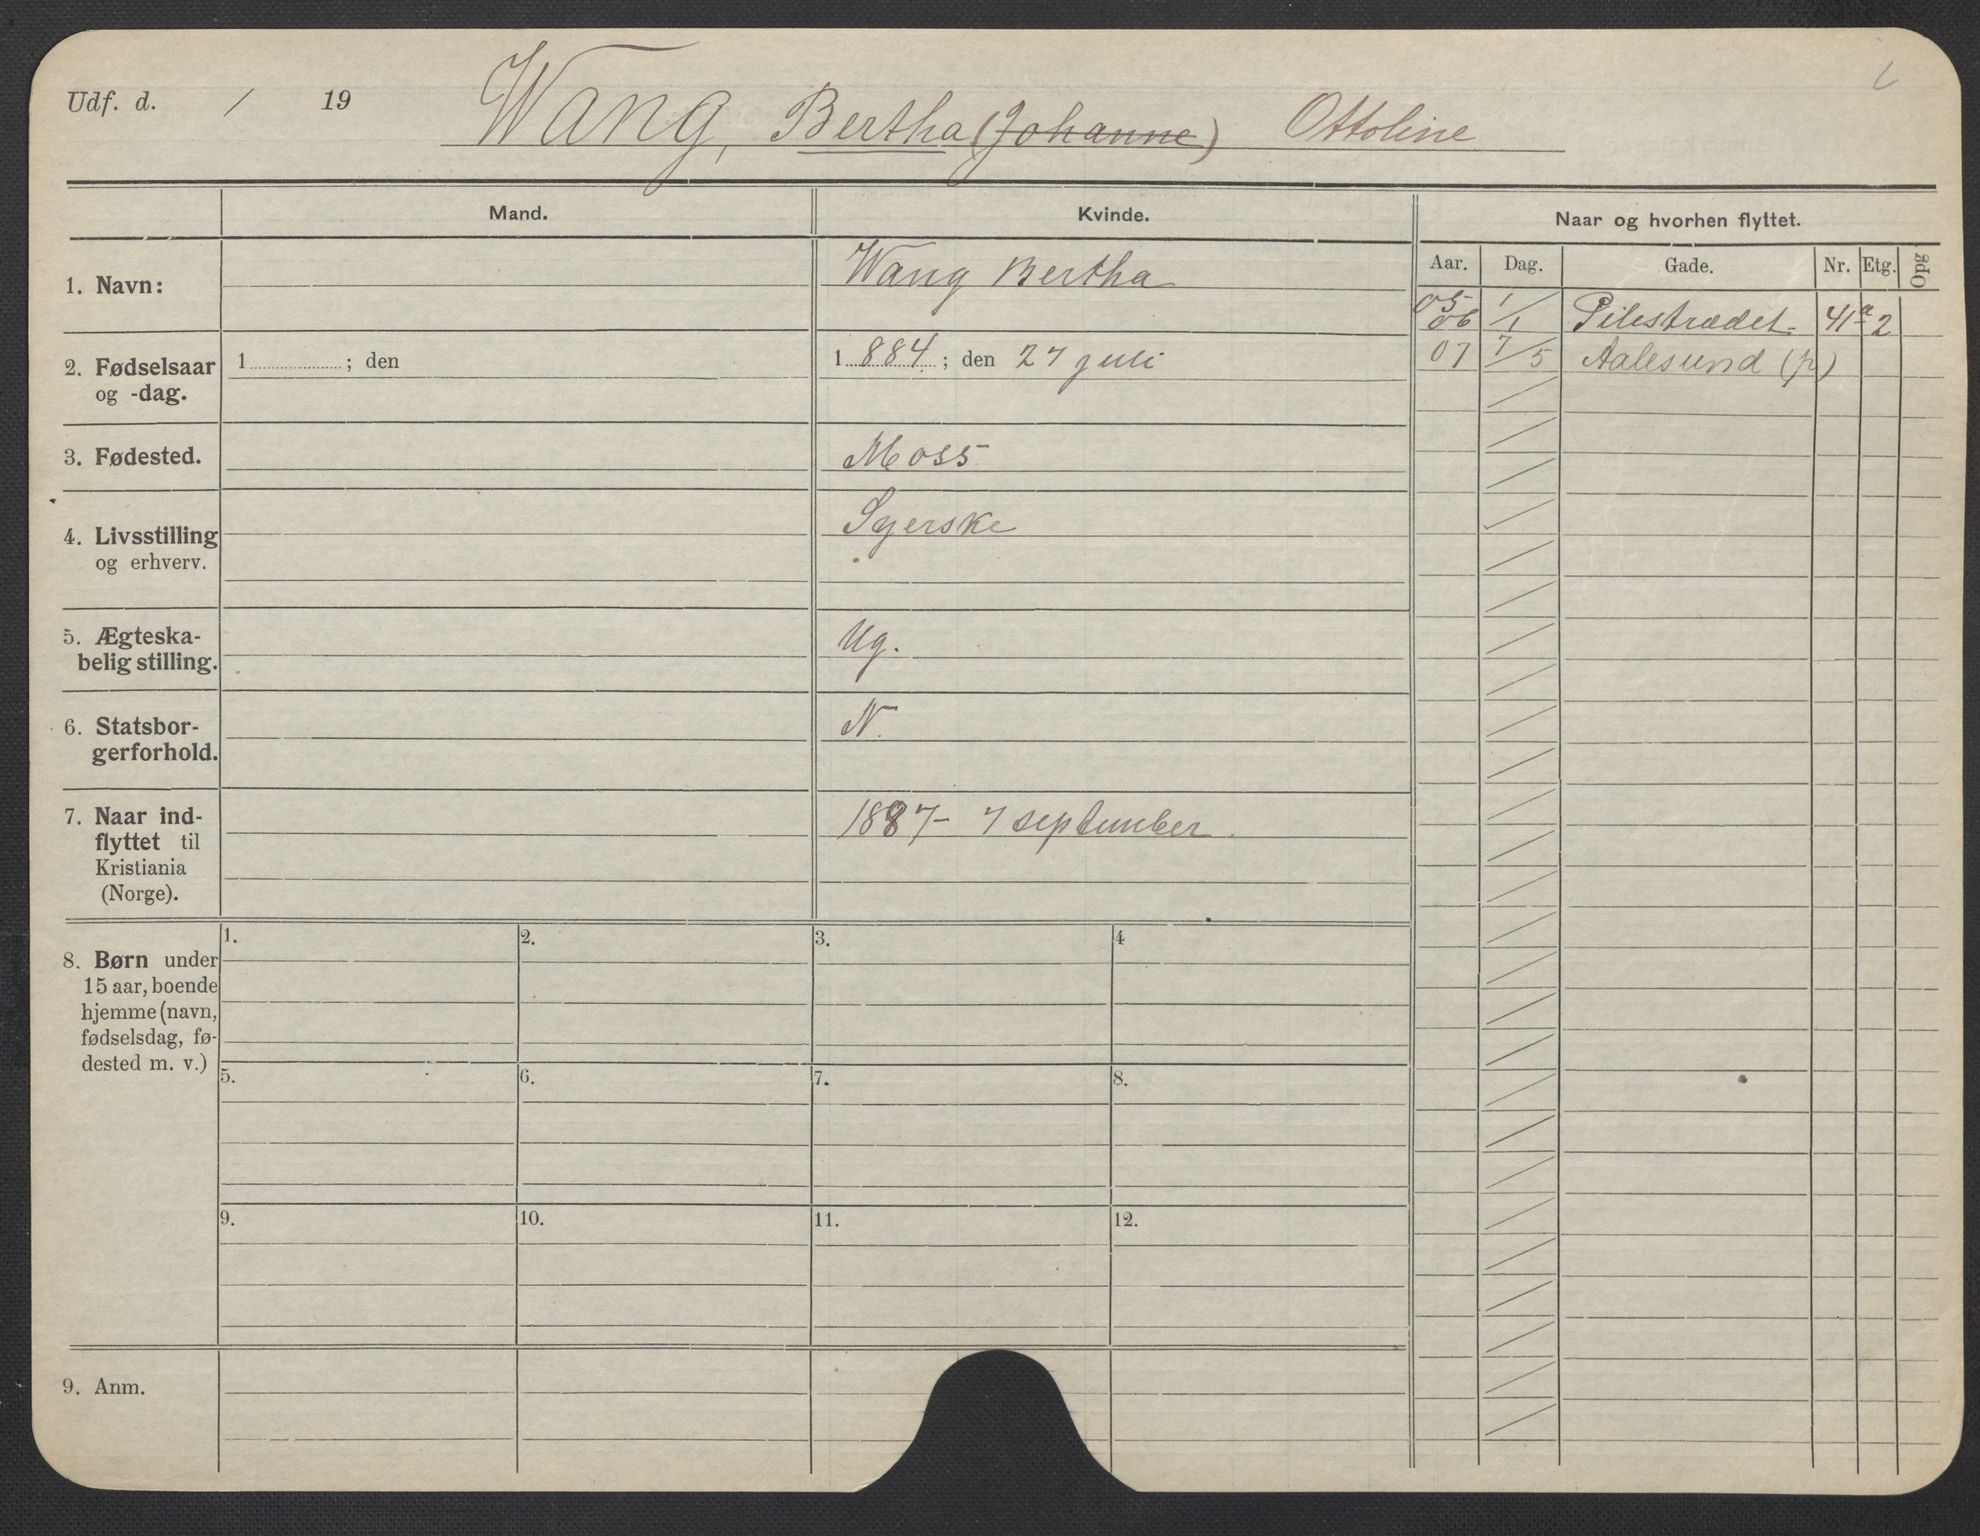 Udf. d. / 19 Wang, Bertha (Johanne) Ottoline
Mand.
Kvinde.
Naar og hvorhen flyttet.
Aar. Dag. Gade. Nr. Etg. Opg
1. Navn:
Wang Bertha
05
06 1/1 Pilestrædet 41a 2
07 7/5 Aalesund (p)
2. Fødselsaar
og -dag.
1 ; den
1884 ; den 27 juli
3. Fødested.
Moss
4. Livsstilling
og erhverv.
Syerske
5. Ægteska-
belig stilling.
Ug.
6. Statsbor-
gerforhold.
N.
7. Naar ind-
flyttet til
Kristiania
(Norge).
1887 - 7 september.
8. Børn under
15 aar, boende
hjemme (navn,
fødselsdag, fø-
dested m. v.)
1. 2. 3. 4
5. 6. 7. 8.
9. 10. 11. 12.
9. Anm.